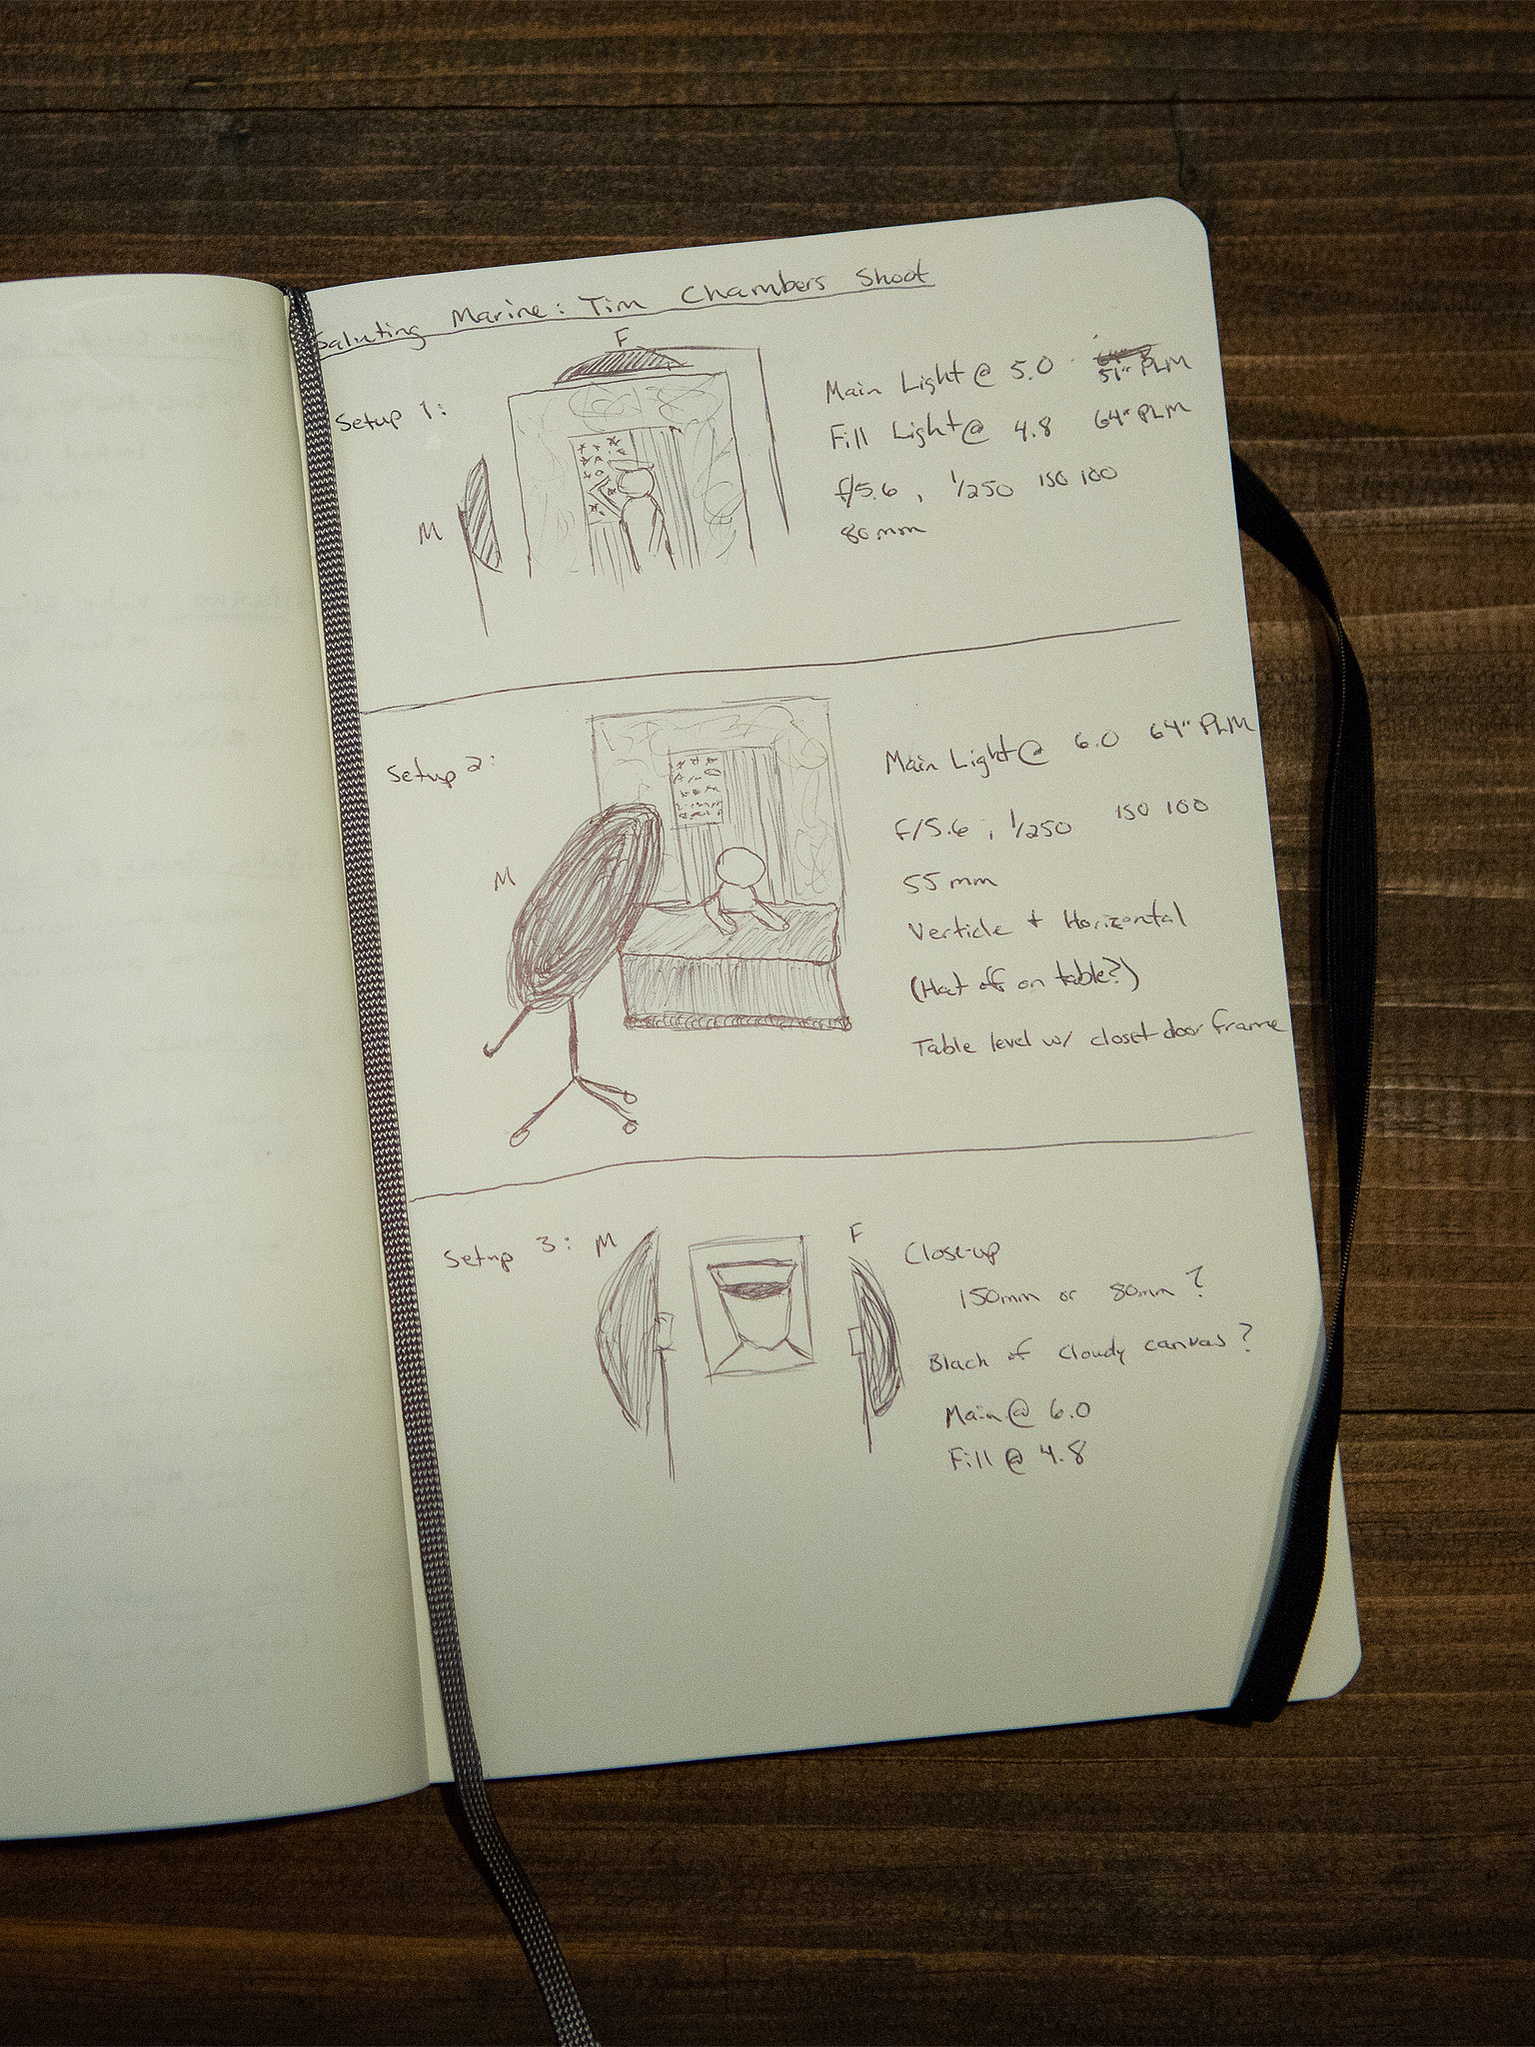 Saluting Marine: Tim Chambers Shoot
F
Setup 1:
M
Main Light @ 5.0 51" PLM
Fill Light @ 4.8 64" PLM
f/5.6, 1/250 ISO 100
80mm
Setup 2:
M
Main Light @ 6.0 64" PLM
f/5.6, 1/250 ISO 100
55mm
Verticle + Horizontal
(Hat off on table?)
Table level w/ closet door frame
Setup 3: M
F
Close-up
150mm or 80mm?
Black of Cloudy canvas?
Main @ 6.0
Fill @ 4.8